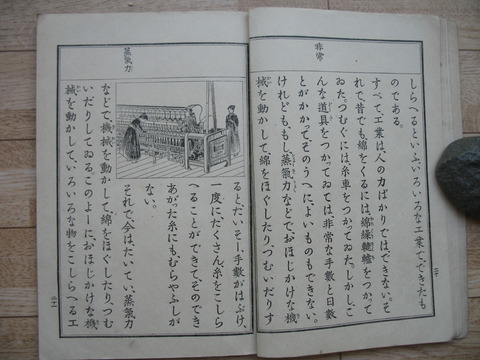 非常
しらへるといふ、いろいろな工業で、できたも
のである。
すべて、工業は、人の力ばかりではできない。そ
れで、昔でも、綿をくるには、綿繰轆轤をつかつて
ゐた。つむぐには、糸車をつかつてゐた。しかし、こ
んな道具をつかつてゐては、非常な手數と日數
とがかかつて、そのうへに、よいものもできない。
けれども、もし、蒸氣力などで、おほじかけな機
械を動かして、綿をほぐしたり、つむいだりす
二十
蒸氣力
ると、たいそー、手數がはぶけ、
一度にたくさん糸をこしら
へることができて、そのでき
あがつた糸にも、むらやふしが
ない。
それで、今は、たいてい、蒸氣力
などで、機械を動かして、綿をほぐしたり、つむ
いだりしてゐる。このよーに、おほじかけな機
械を動かして、いろいろな物をこしらへる工